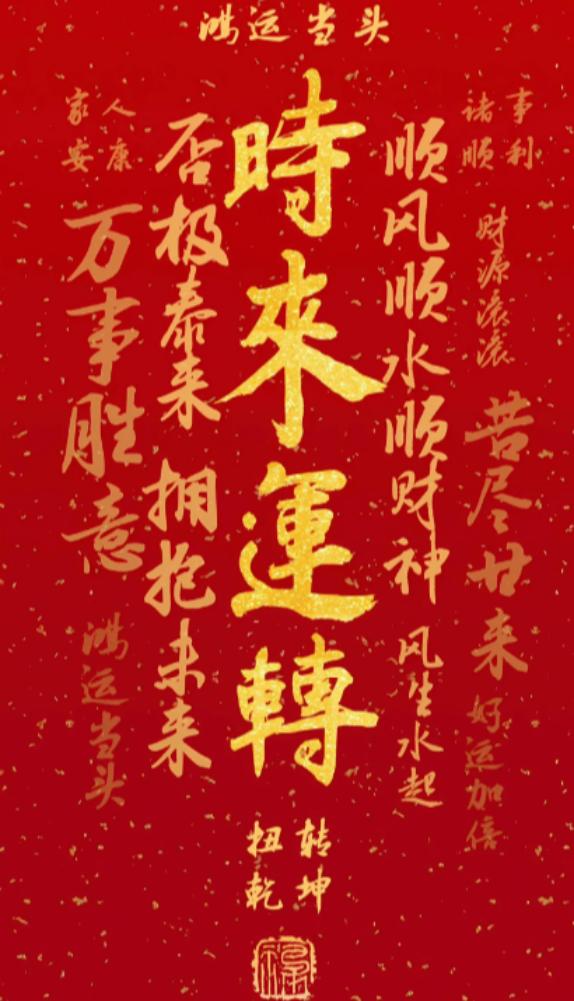 鸿运当头
家人
安康
万事胜意
鸿运当头
否极泰来
拥抱未来
時來運轉
顺风顺水顺财神
风生水起
诸事
顺利
财源滚滚
苦尽甘来
好运加倍
扭转
乾坤
福